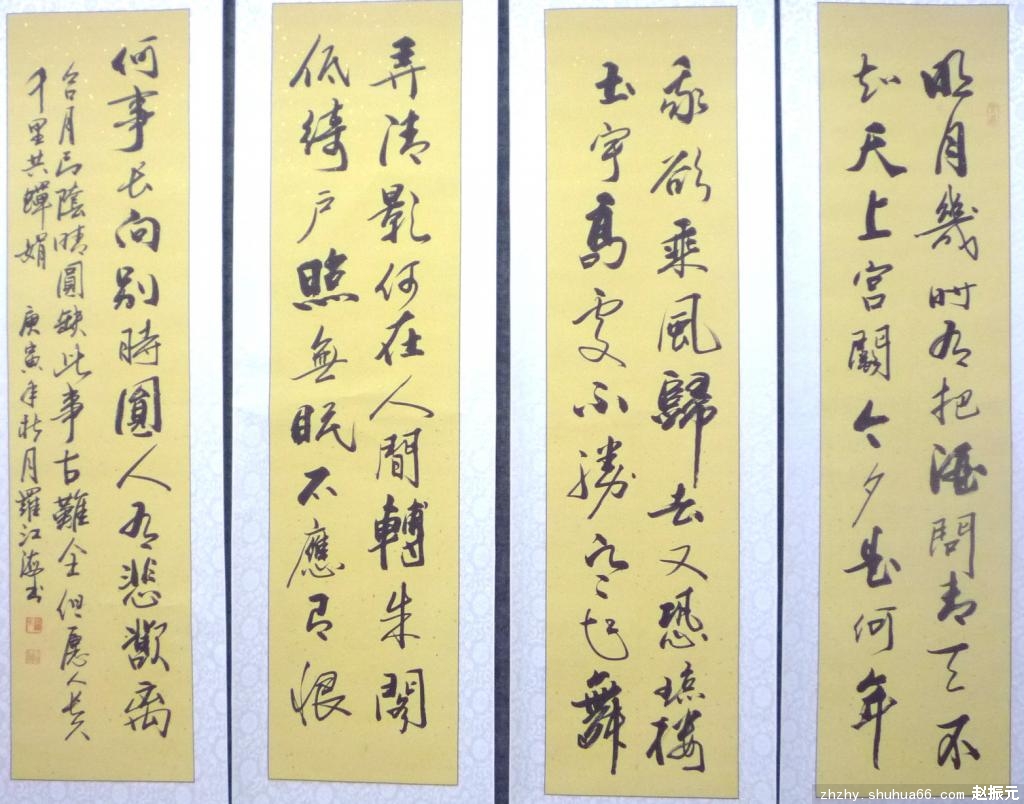 明月幾时有把酒問青天不
知天上宫闕今夕是何年
我欲乘風歸去又恐琼楼
玉宇高处不勝寒起舞
弄清影何在人間轉朱閣
低綺户照無眠不應有恨
何事长向别時圓人有悲歡离
合月有陰晴圓缺此事古難全但愿人長久
千里共嬋娟 庚寅年秋月羅江海书
zhzhy.shuhua66.com 赵振元